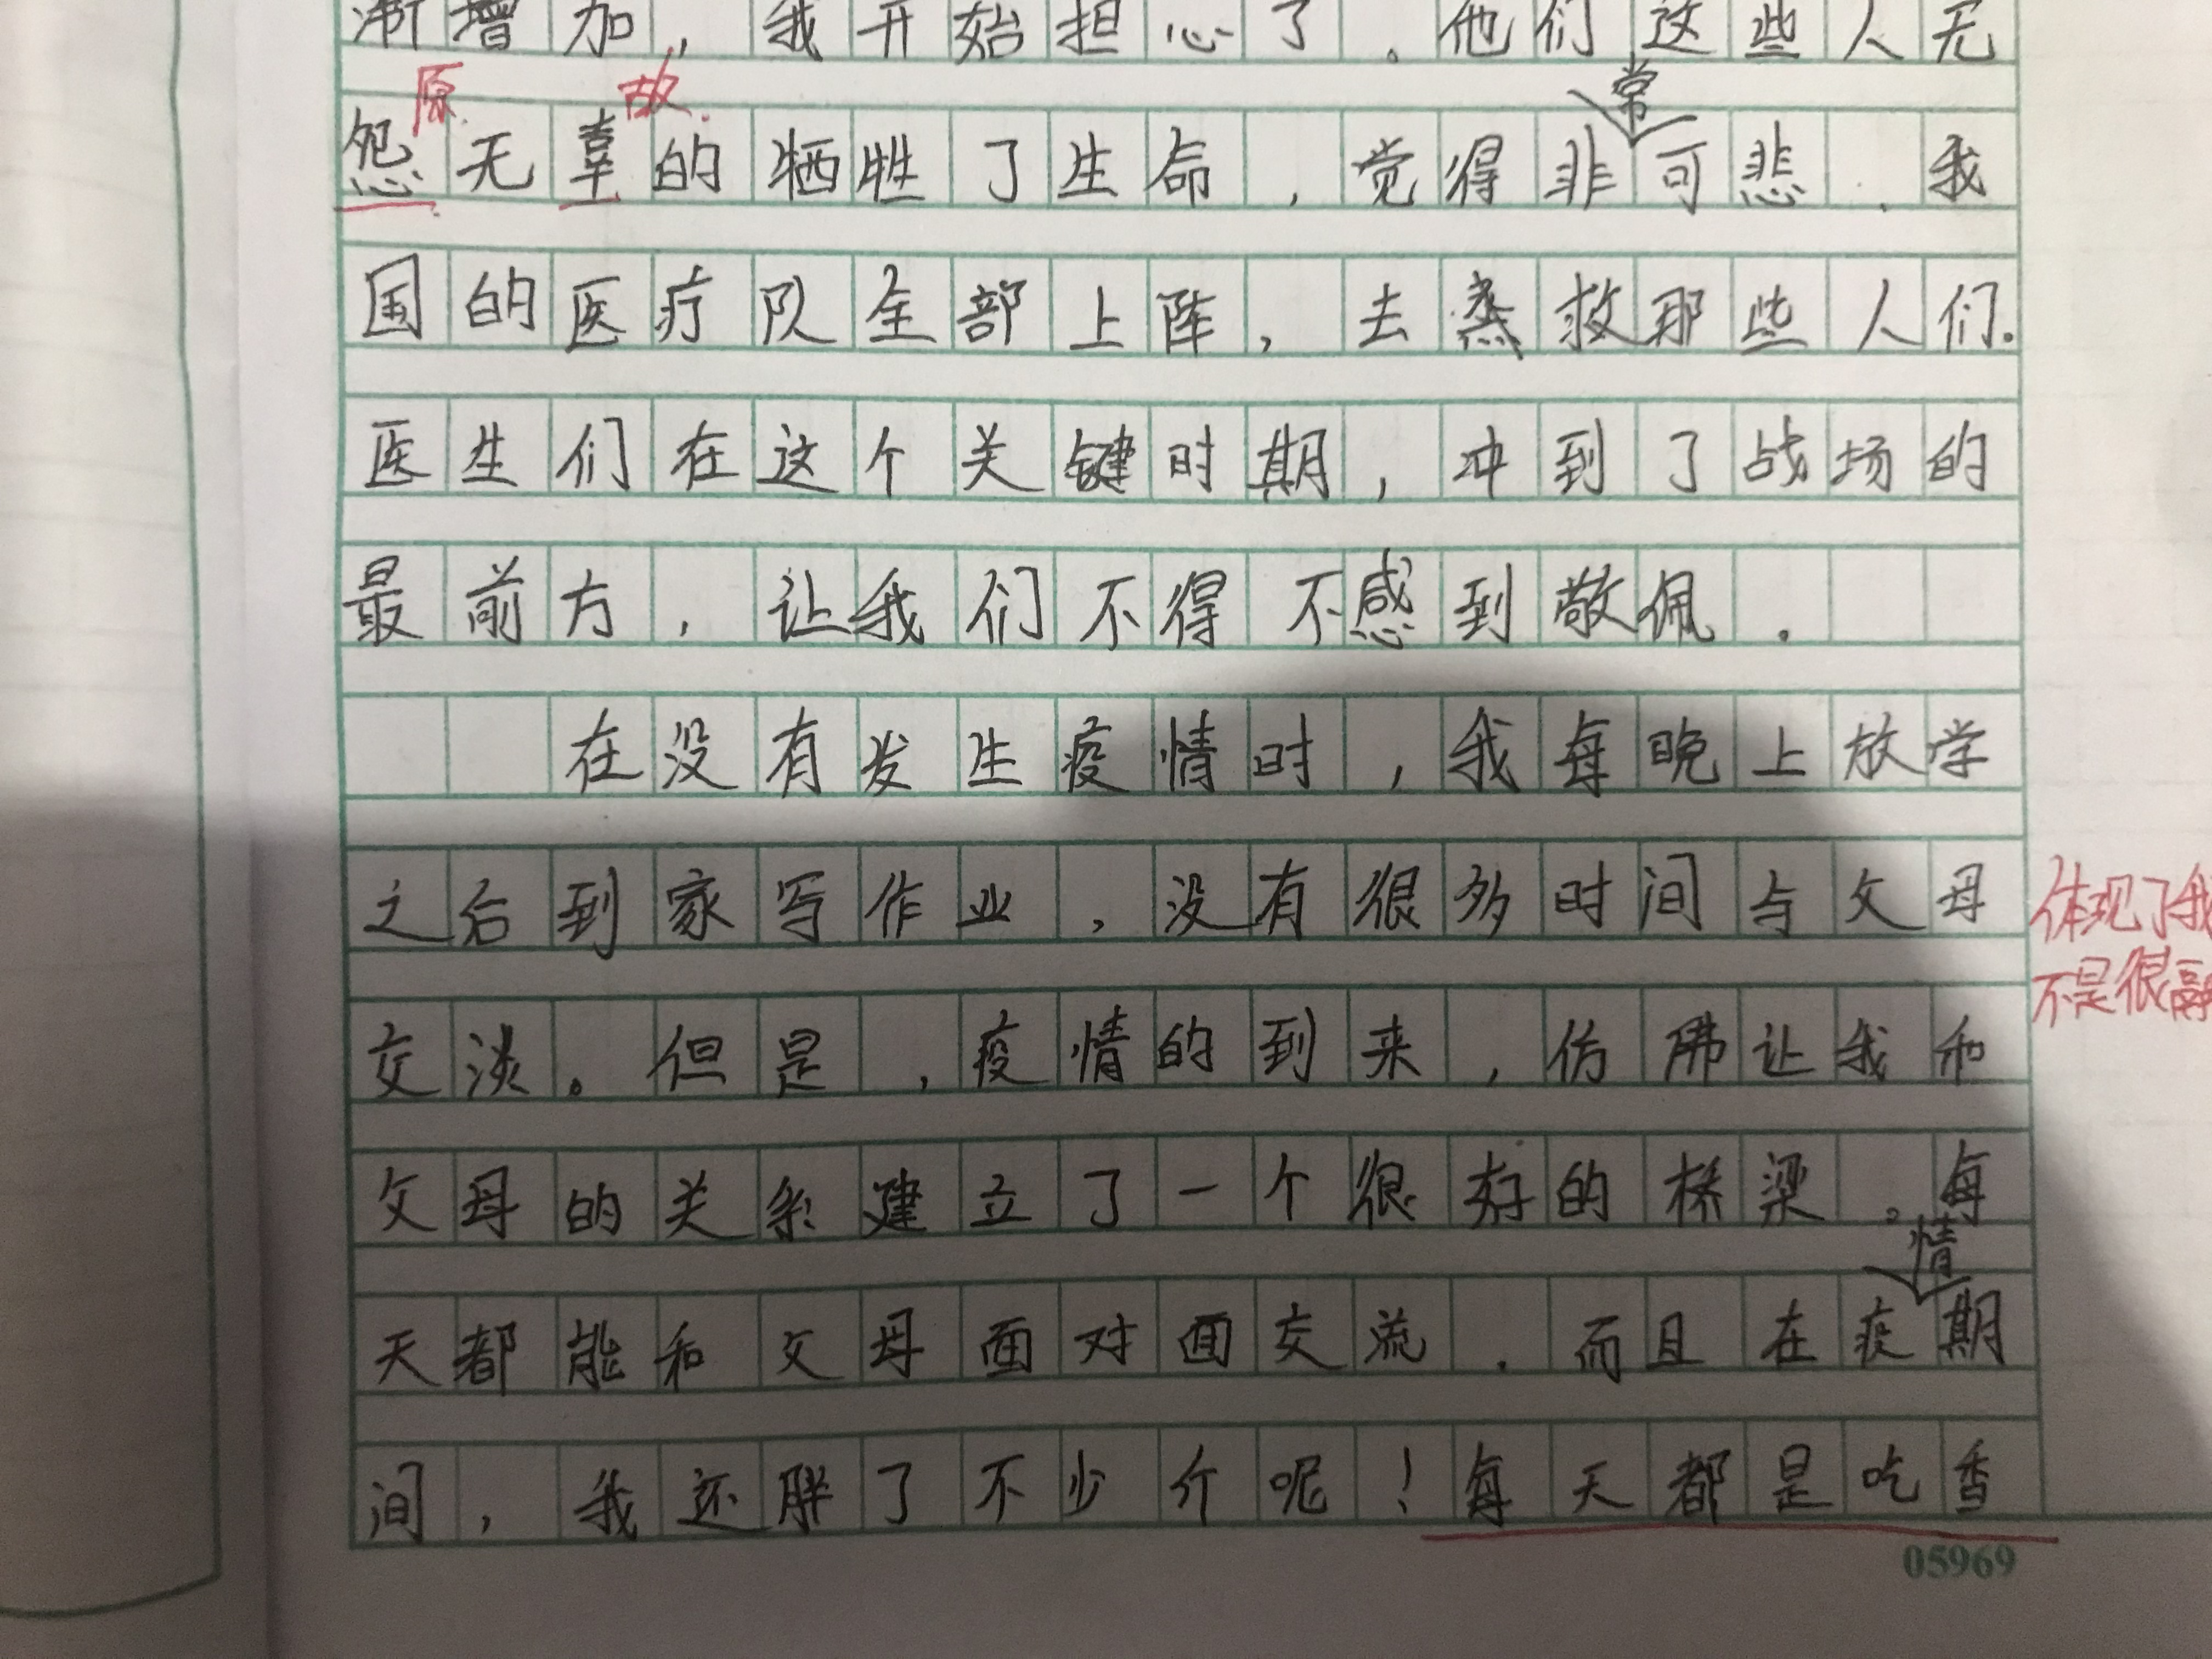 渐增加，我开始担心了。他们这些人无
原 故 常
怨无辜的牺牲了生命，觉得非可悲．我
国的医疗队全部上阵，去救那些人们．
医生们在这个关键时期，冲到了战场的
最前方，让我们不得不感到敬佩．
在没有发生疫情时，我每晚上放学
之后到家写作业，没有很多时间与父母
体现了我
不是很融
交淡。但是，疫情的到来，仿佛让我和
父母的关系建立了一个很好的桥梁。每
情
天都能和父母面对面交流．而且在疫期
间，我还胖了不少斤呢！每天都是吃香
05969